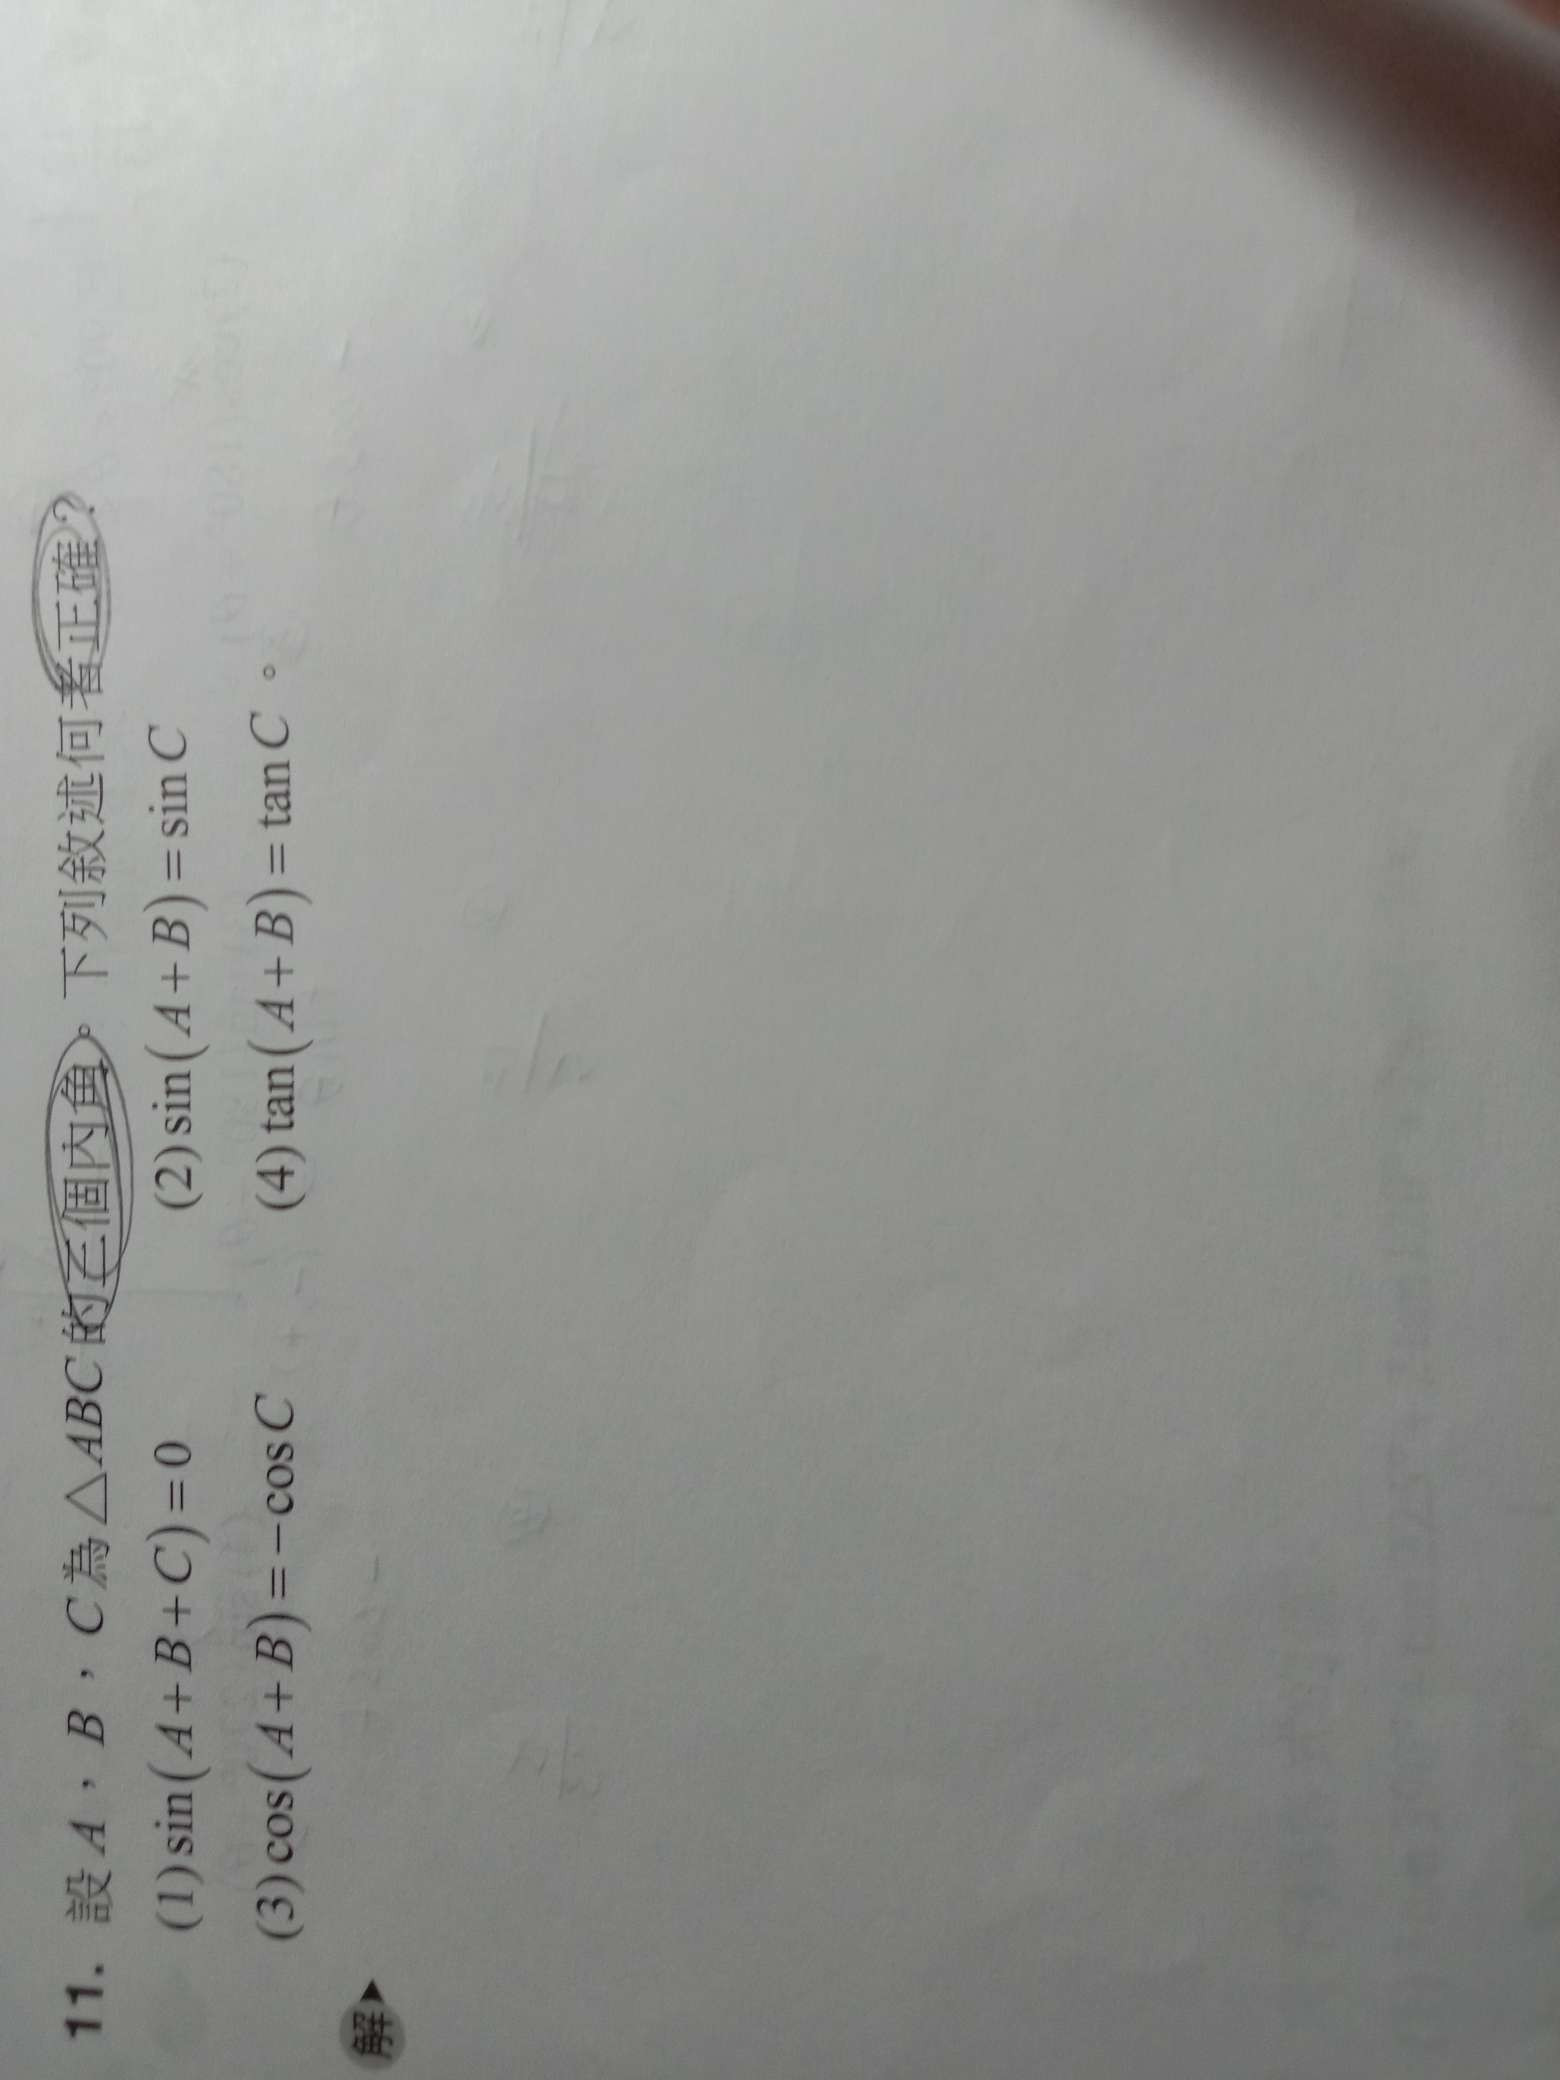 11. 設A，B，C為△ABC的三個內角。下列敘述何者正確？
(1)sin(A+B+C)=0 (2)sin(A+B)=sinC
(3)cos(A+B)=-cosC (4)tan(A+B)=tanC。
解